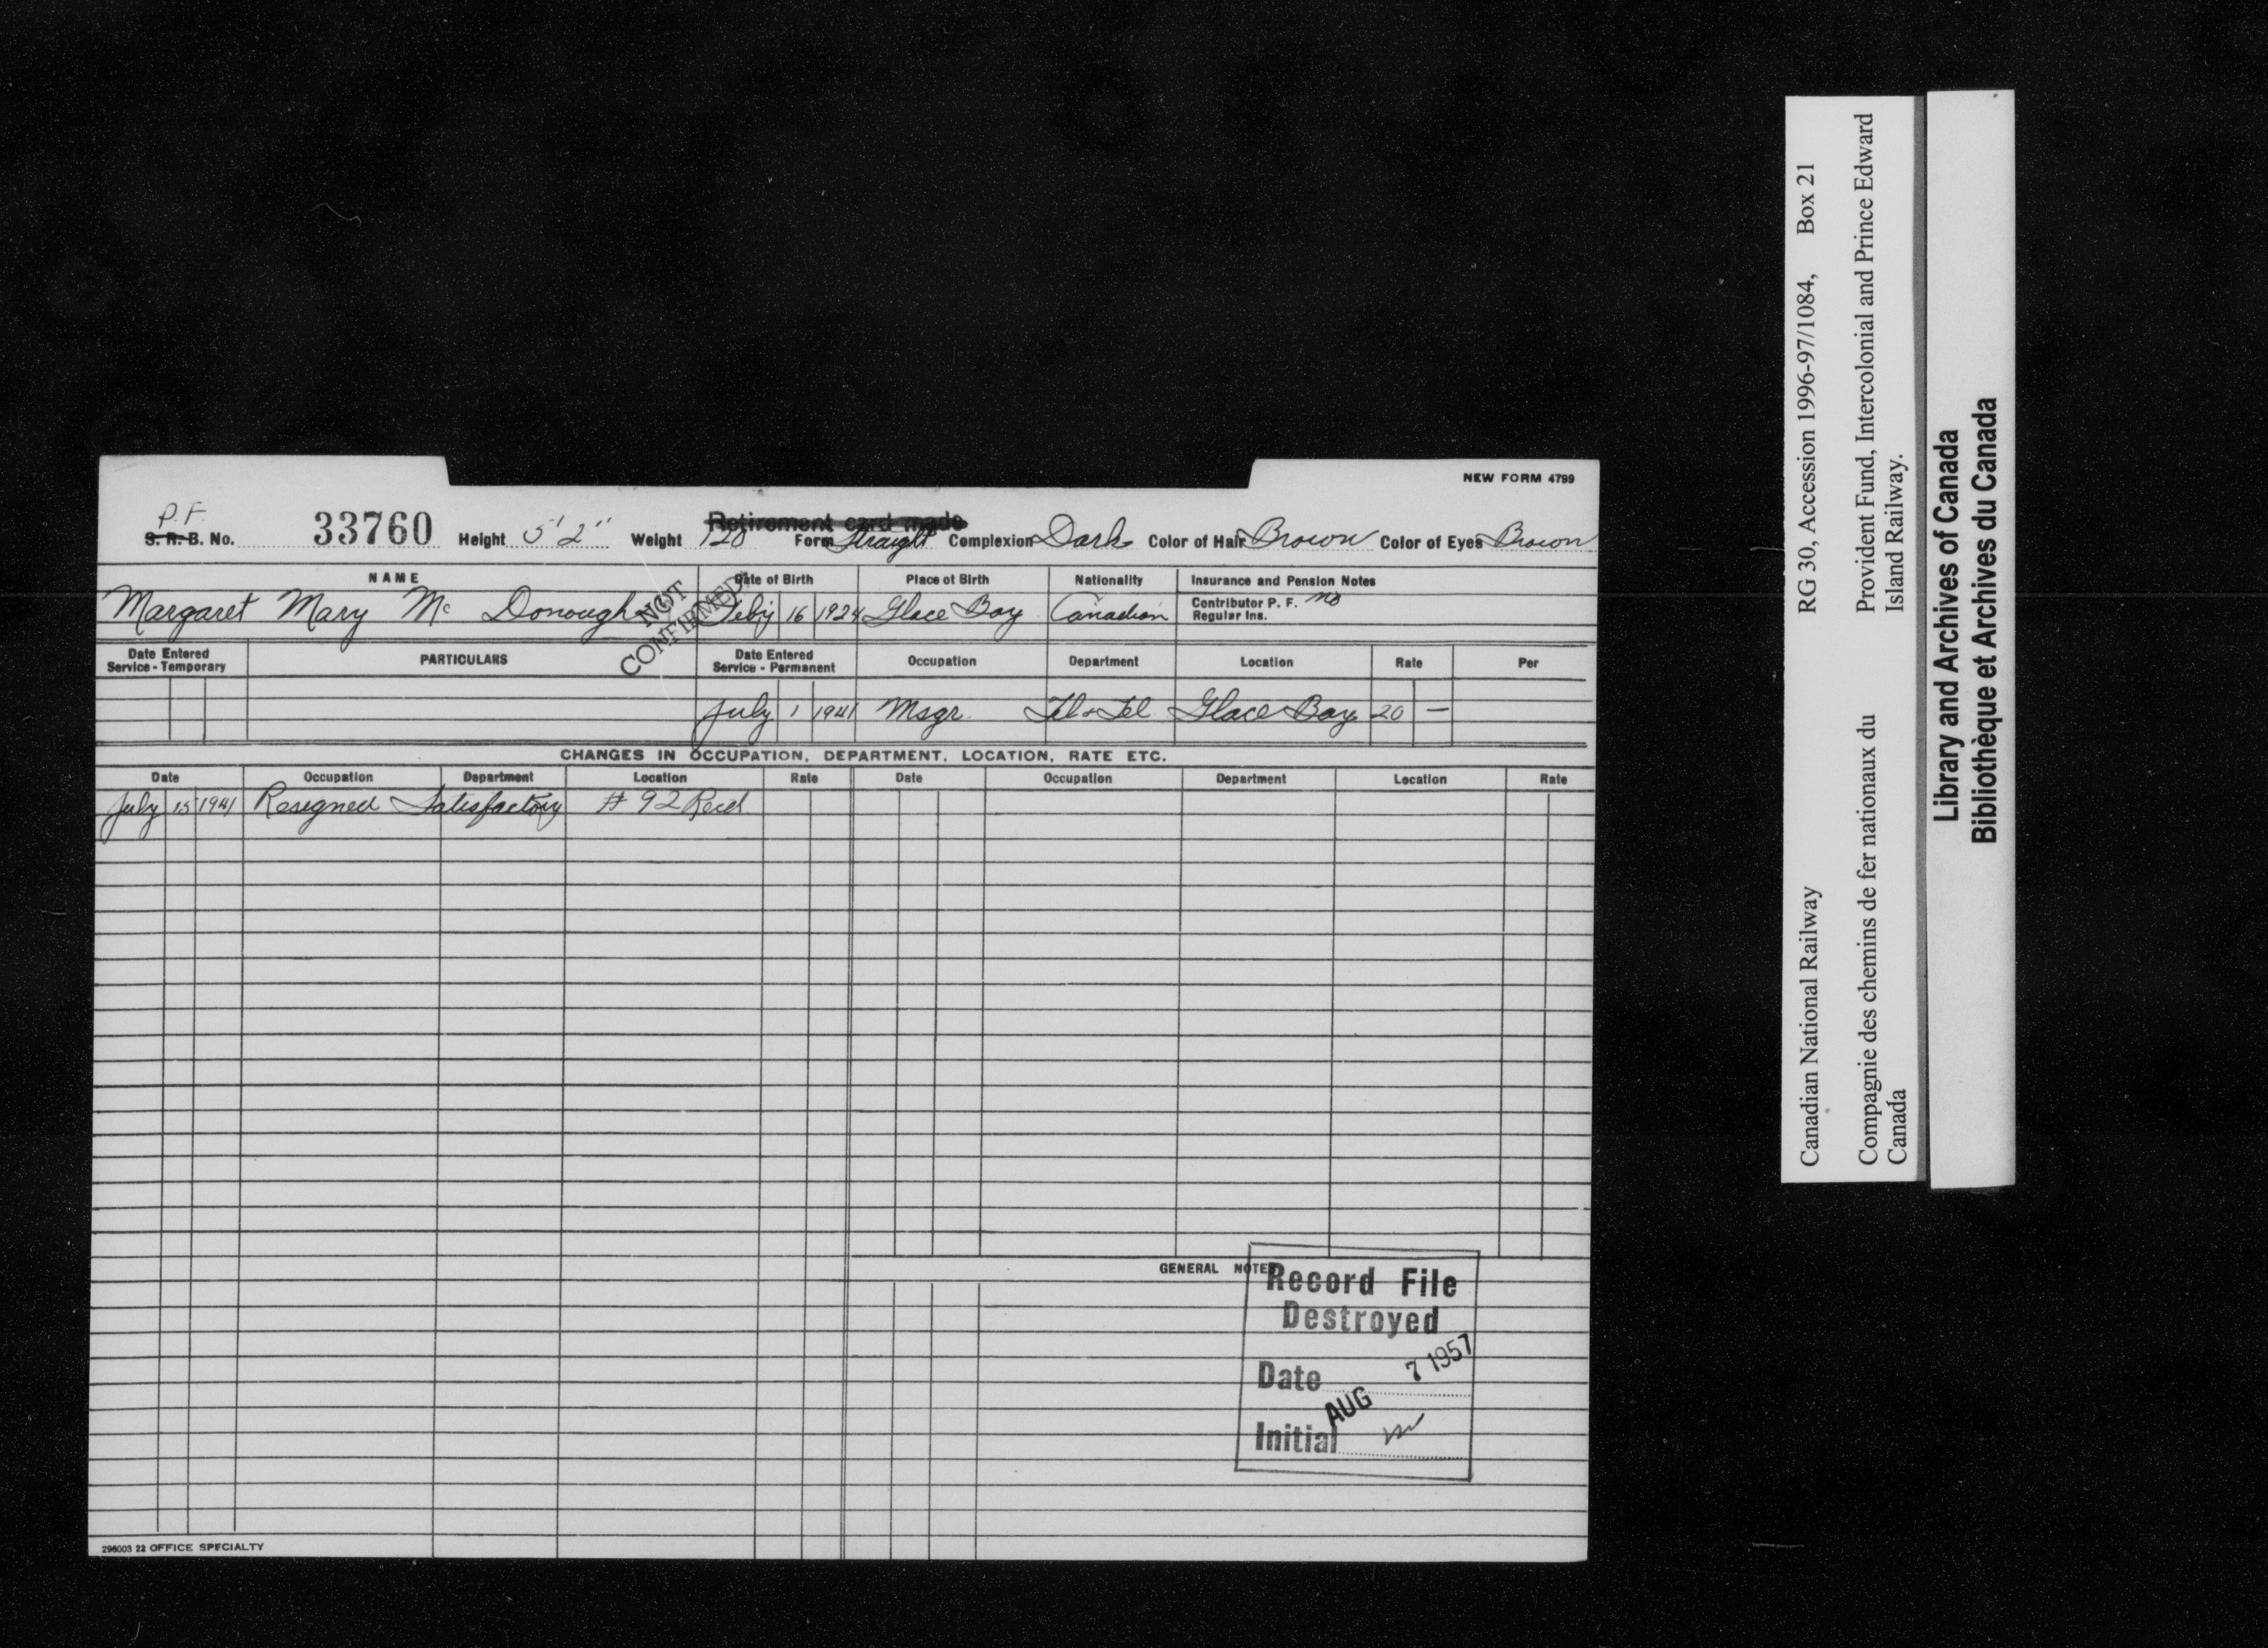 NEW FORM 4799
P.F.
S. R. B. No. 33760 Height 5' 2" Weight 120 Form Straight Complexion Dark Color of Hair Brown Color of Eyes Brown
Retirement card made
NAME Date of Birth Place of Birth Nationality Insurance and Pension Notes
Margaret Mary Mc Donough Feb'y 16 1924 Glace Bay Canadian Contributor P. F. no
Regular Ins.
NOT
CONFIRMED
Date Entered
Service - Temporary PARTICULARS Date Entered
Service - Permanent Occupation Department Location Rate Per
July 1 1941 Msgr. Tel & Tel Glace Bay 20 —
CHANGES IN OCCUPATION, DEPARTMENT, LOCATION, RATE ETC.
Date Occupation Department Location Rate Date Occupation Department Location Rate
July 15 1941 Resigned Satisfactory # 92 Recd.
GENERAL NOTES
Record File
Destroyed
Date AUG 7 1957
Initial
296003 22 OFFICE SPECIALTY
Canadian National Railway RG 30, Accession 1996-97/1084, Box 21
Compagnie des chemins de fer nationaux du
Canada
Provident Fund, Intercolonial and Prince Edward
Island Railway.
Library and Archives of Canada
Bibliothèque et Archives du Canada